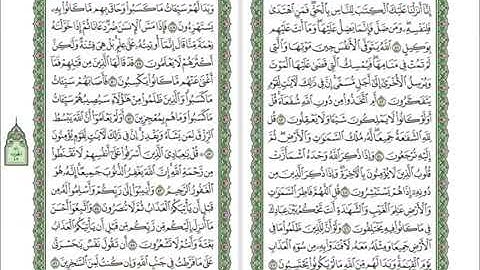 إِنَّا أَنزَلْنَا عَلَيْكَ الْكِتَٰبَ لِلنَّاسِ بِالْحَقِّ فَمَنِ اهْتَدَىٰ
فَلِنَفْسِهِ وَمَن ضَلَّ فَإِنَّمَا يَضِلُّ عَلَيْهَا وَمَا أَنتَ عَلَيْهِم
بِوَكِيلٍ ٤١ اللَّهُ يَتَوَفَّى الْأَنفُسَ حِينَ مَوْتِهَا وَالَّتِي
لَمْ تَمُتْ فِي مَنَامِهَا فَيُمْسِكُ الَّتِي قَضَىٰ عَلَيْهَا الْمَوْتَ
وَيُرْسِلُ الْأُخْرَىٰ إِلَىٰ أَجَلٍ مُّسَمًّى إِنَّ فِي ذَٰلِكَ لَآيَٰتٍ لِّقَوْمٍ
يَتَفَكَّرُونَ ٤٢ أَمِ اتَّخَذُوا مِن دُونِ اللَّهِ شُفَعَاءَ قُلْ
أَوَلَوْ كَانُوا لَا يَمْلِكُونَ شَيْئًا وَلَا يَعْقِلُونَ ٤٣ قُل
لِّلَّهِ الشَّفَٰعَةُ جَمِيعًا لَّهُ مُلْكُ السَّمَٰوَٰتِ وَالْأَرْضِ ثُمَّ
إِلَيْهِ تُرْجَعُونَ ٤٤ وَإِذَا ذُكِرَ اللَّهُ وَحْدَهُ اشْمَأَزَّتْ
قُلُوبُ الَّذِينَ لَا يُؤْمِنُونَ بِالْآخِرَةِ وَإِذَا ذُكِرَ الَّذِينَ مِن
دُونِهِ إِذَا هُمْ يَسْتَبْشِرُونَ ٤٥ قُلِ اللَّهُمَّ فَاطِرَ السَّمَٰوَٰتِ
وَالْأَرْضِ عَٰلِمَ الْغَيْبِ وَالشَّهَٰدَةِ أَنتَ تَحْكُمُ بَيْنَ عِبَادِكَ
فِي مَا كَانُوا فِيهِ يَخْتَلِفُونَ ٤٦ وَلَوْ أَنَّ لِلَّذِينَ ظَلَمُوا مَا فِي
الْأَرْضِ جَمِيعًا وَمِثْلَهُ مَعَهُ لَافْتَدَوْا بِهِ مِن سُوءِ الْعَذَابِ
يَوْمَ الْقِيَٰمَةِ وَبَدَا لَهُم مِّنَ اللَّهِ مَا لَمْ يَكُونُوا يَحْتَسِبُونَ ٤٧
وَبَدَا لَهُمْ سَيِّـَٔاتُ مَا كَسَبُوا وَحَاقَ بِهِم مَّا كَانُوا بِهِ
يَسْتَهْزِءُونَ ٤٨ فَإِذَا مَسَّ الْإِنسَٰنَ ضُرٌّ دَعَانَا ثُمَّ إِذَا خَوَّلْنَٰهُ
نِعْمَةً مِّنَّا قَالَ إِنَّمَا أُوتِيتُهُ عَلَىٰ عِلْمٍ بَلْ هِيَ فِتْنَةٌ وَلَٰكِنَّ
أَكْثَرَهُمْ لَا يَعْلَمُونَ ٤٩ قَدْ قَالَهَا الَّذِينَ مِن قَبْلِهِمْ فَمَا
أَغْنَىٰ عَنْهُم مَّا كَانُوا يَكْسِبُونَ ٥٠ فَأَصَابَهُمْ سَيِّـَٔاتُ
مَا كَسَبُوا وَالَّذِينَ ظَلَمُوا مِنْ هَٰؤُلَاءِ سَيُصِيبُهُمْ سَيِّـَٔاتُ
مَا كَسَبُوا وَمَا هُم بِمُعْجِزِينَ ٥١ أَوَلَمْ يَعْلَمُوا أَنَّ اللَّهَ يَبْسُطُ
الرِّزْقَ لِمَن يَشَاءُ وَيَقْدِرُ إِنَّ فِي ذَٰلِكَ لَآيَٰتٍ لِّقَوْمٍ يُؤْمِنُونَ
٥٢ ۞ قُلْ يَٰعِبَادِيَ الَّذِينَ أَسْرَفُوا عَلَىٰ أَنفُسِهِمْ لَا تَقْنَطُوا
مِن رَّحْمَةِ اللَّهِ إِنَّ اللَّهَ يَغْفِرُ الذُّنُوبَ جَمِيعًا إِنَّهُ هُوَ
الْغَفُورُ الرَّحِيمُ ٥٣ وَأَنِيبُوا إِلَىٰ رَبِّكُمْ وَأَسْلِمُوا لَهُ مِن
قَبْلِ أَن يَأْتِيَكُمُ الْعَذَابُ ثُمَّ لَا تُنصَرُونَ ٥٤ وَاتَّبِعُوا أَحْسَنَ
مَا أُنزِلَ إِلَيْكُم مِّن رَّبِّكُم مِّن قَبْلِ أَن يَأْتِيَكُمُ الْعَذَابُ
بَغْتَةً وَأَنتُمْ لَا تَشْعُرُونَ ٥٥ أَن تَقُولَ نَفْسٌ يَٰحَسْرَتَىٰ
عَلَىٰ مَا فَرَّطتُ فِي جَنبِ اللَّهِ وَإِن كُنتُ لَمِنَ السَّٰخِرِينَ ٥٦